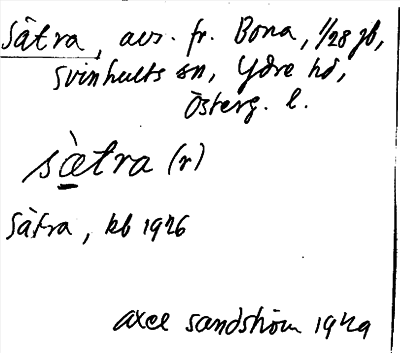 Sätra, avs. fr. Bona, 1/28 gb,
Svinhults sn, Ydre hd,
Österg. l.
sàtra (r)
Sätra, kb 1926
Axel Sandström 1929